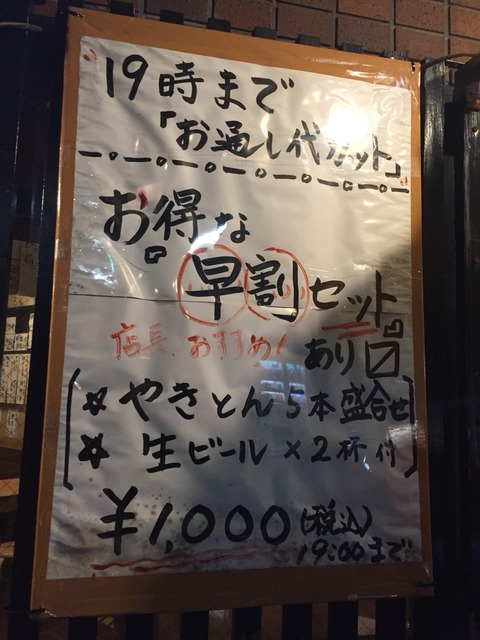 19時まで
「お通し代カット」
お得な
『早割セット』
店長おすすめ!
あり〼
☆やきとん5本盛合せ
☆生ビール×2杯付
¥1,000(税込)
19:00まで